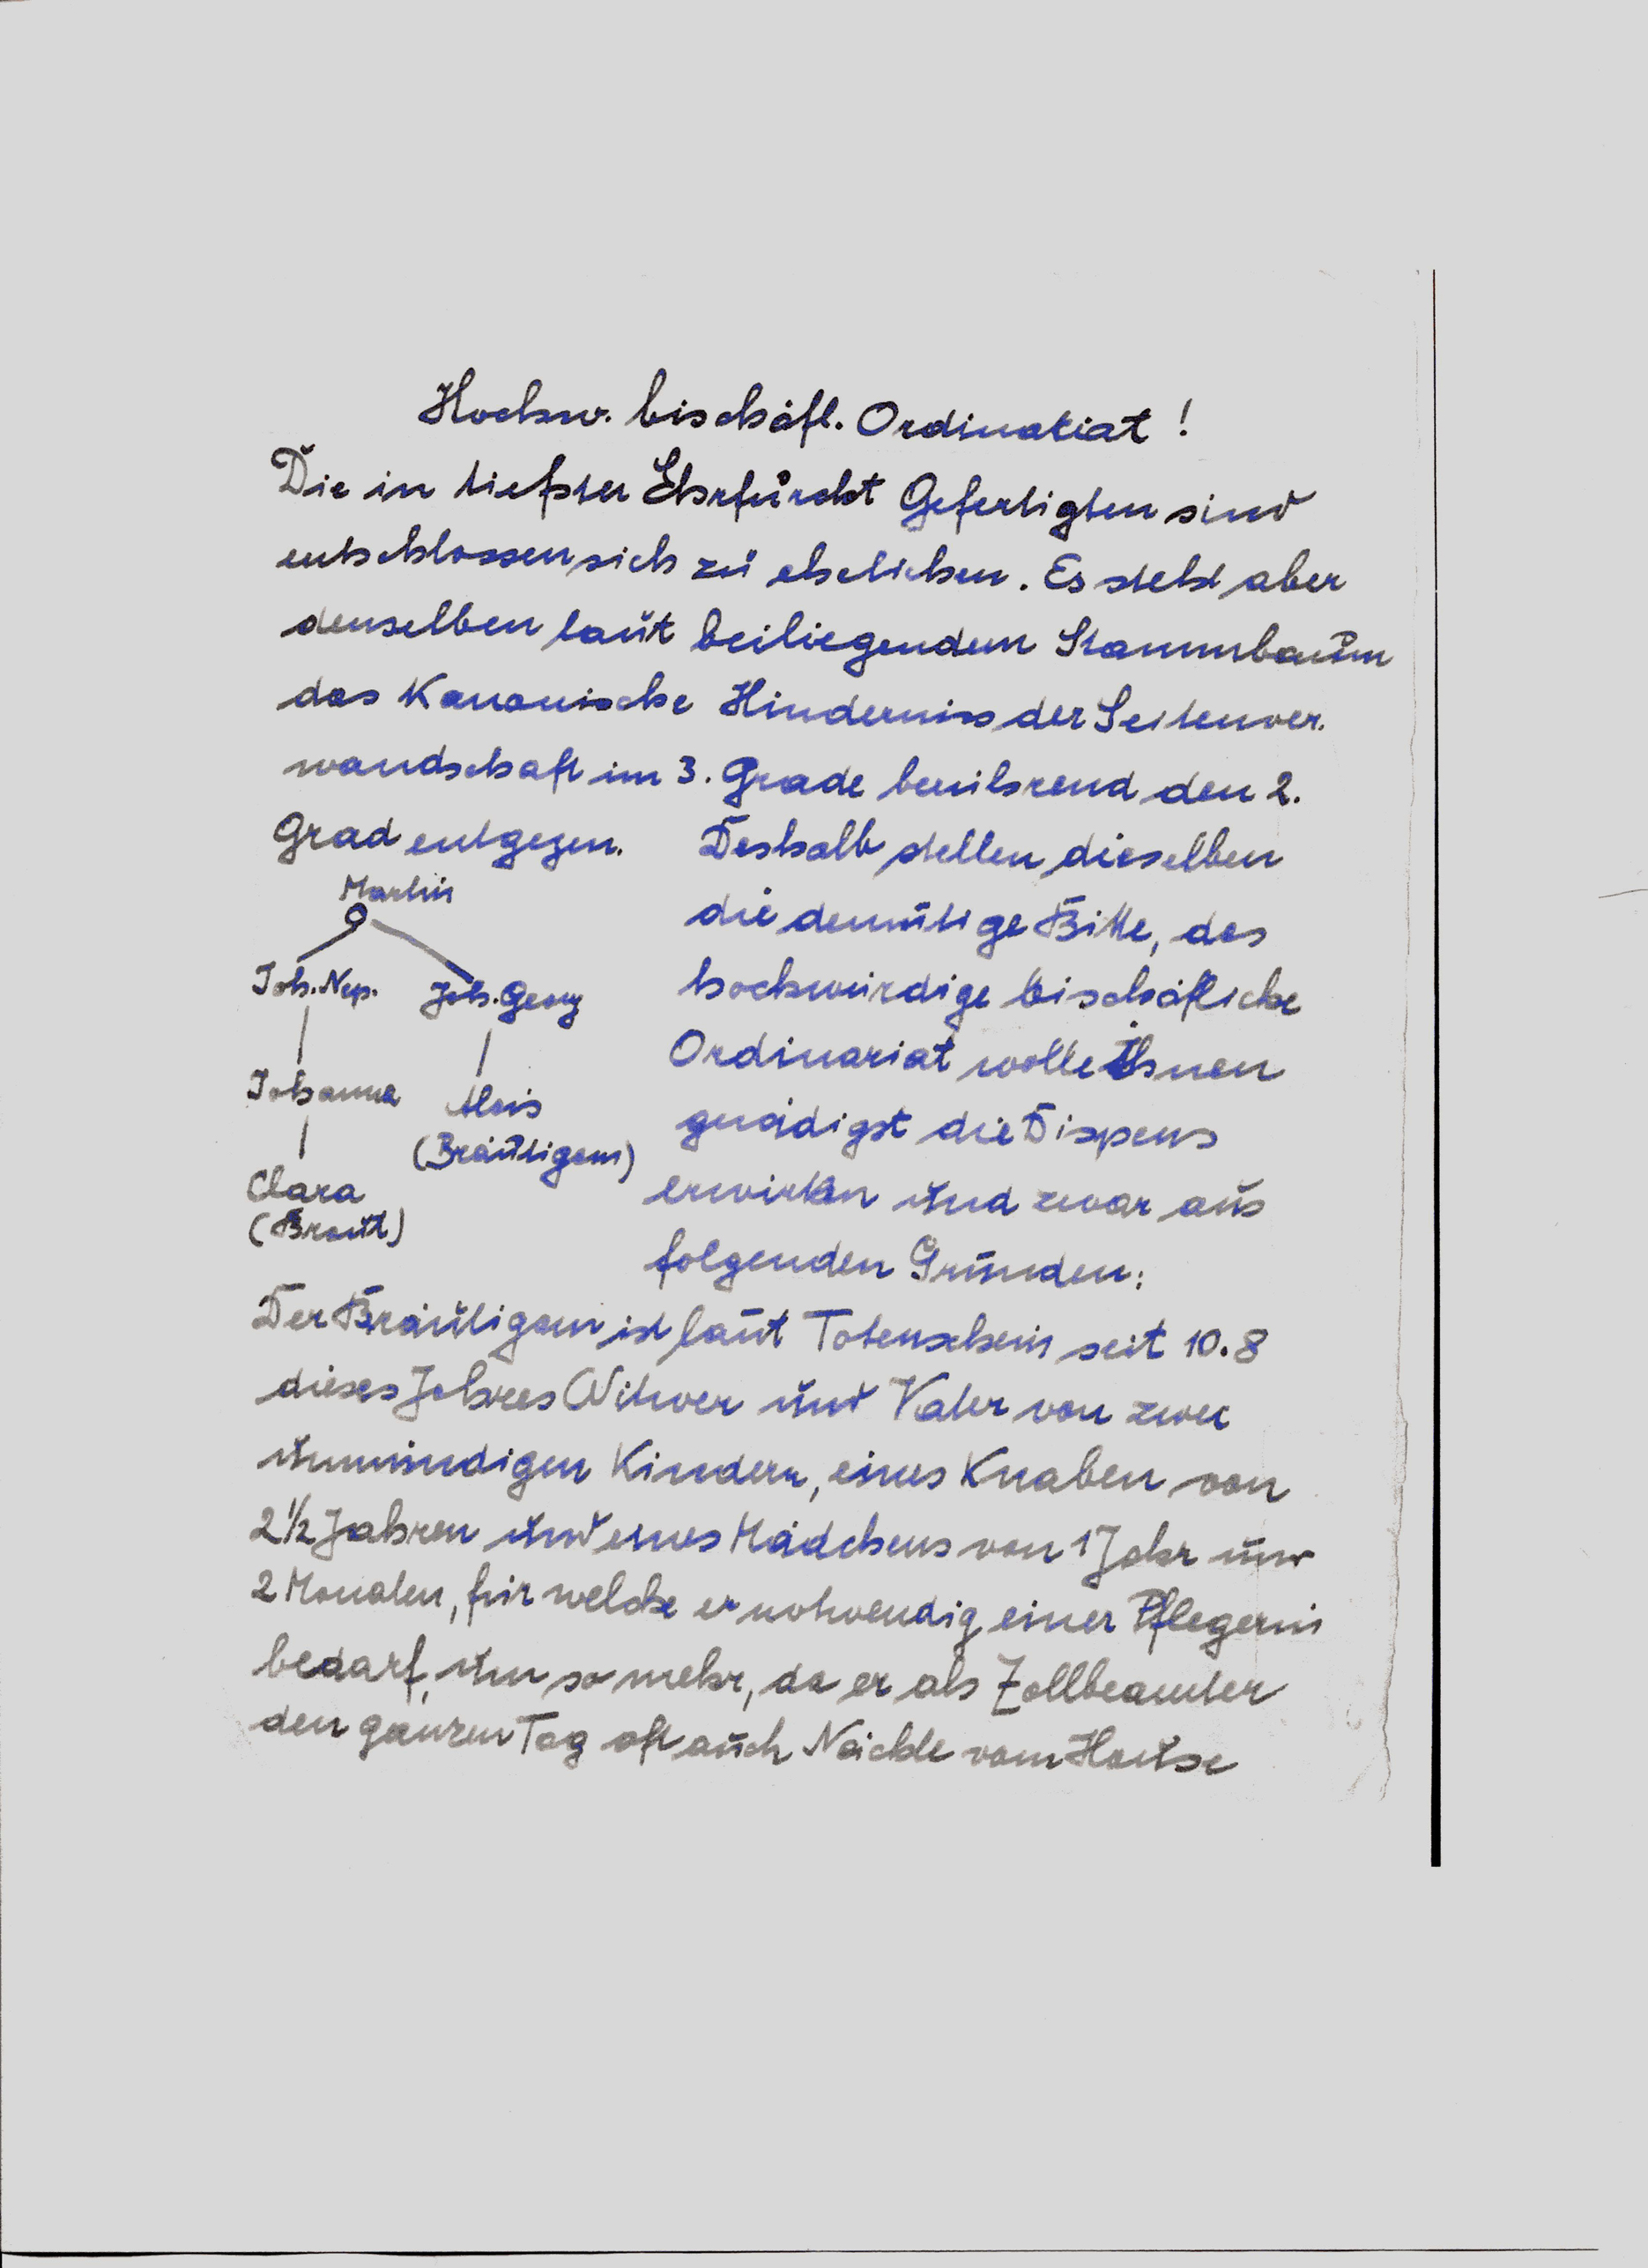 Hochw. bischöfl. Ordinariat!
Die in tiefster Ehrfurcht Gefertigten sind
entschlossen sich zu ehelichen. Es steht aber
denselben laut beiliegendem Stammbaum
das Kanonische Hinderniss der Seitenver.
wandschaft im 3. Grade berührend den 2.
Grad entgegen. Deshalb stellen dieselben
die demütige Bitte, das
hochwürdige bischöfliche
Ordinariat wolle Ihnen
gnädigst die Dispens
erwirken und zwar aus
folgenden Gründen:
Martin
Joh. Nep. Joh. Georg
Johanna Alois
(Bräutigam)
Clara
(Braut)
Der Bräutigam ist laut Totenschein seit 10.8
dieses Jahres Witwer und Vater von zwei
unmündigen Kindern, eines Knaben von
2½ Jahren und eines Mädchens von 1 Jahr und
2 Monaten, für welche er notwendig einer Pflegerin
bedarf, um so mehr, da er als Zollbeamter
den ganzen Tag oft auch Nächte vom Hause